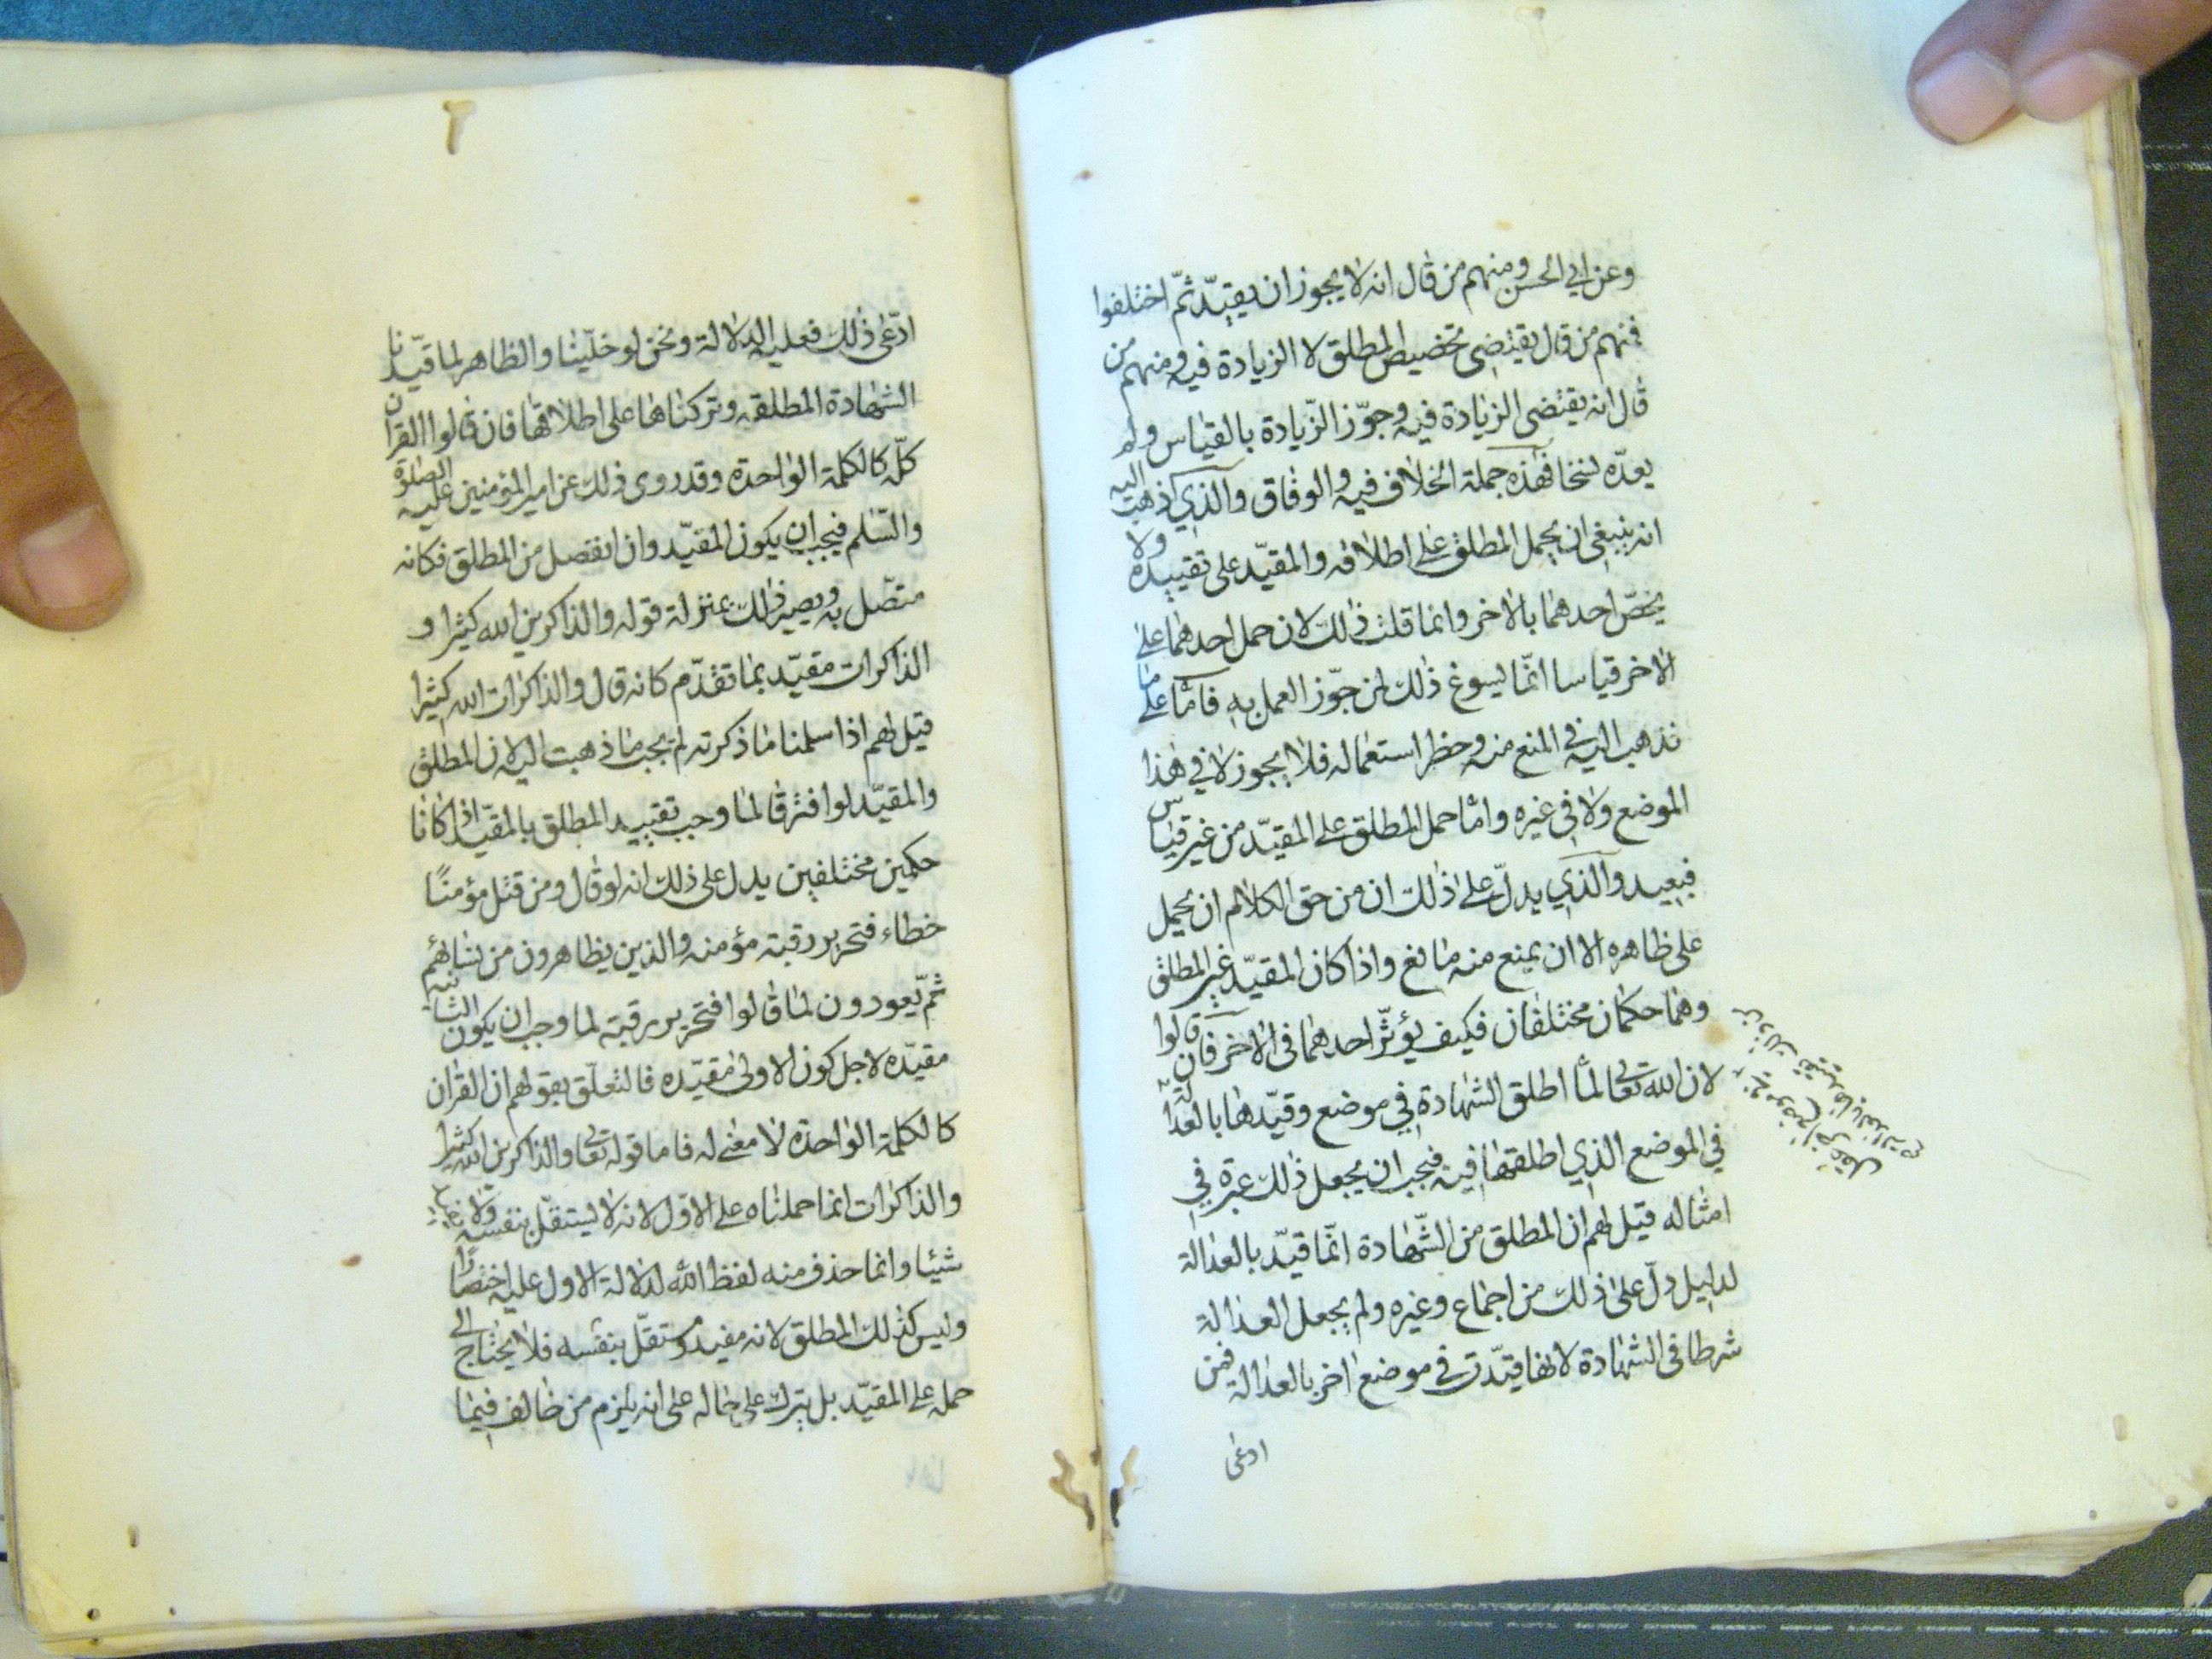 وعن ابي الحسن ومنهم من قال انه لا يجوز ان يقيّد ثمّ اختلفوا
فمنهم من قال يقتضى تخصيص المطلق لا الزيادة فيه ومنهم من
قال انه يقتضى الزيادة فيه وجوّز الزّيادة بالقياس ولم
يعدّه نسخا فهذه جملة الخلاف فيه والوفاق والذي اذهب اليه
انه ينبغي ان يحمل المطلق على اطلاقه والمقيّد على تقييده ولا
يخصّ احدهما بالاخر وانما قلت ذلك لان حمل احدهما على
الاخر قياسا انمّا يسوغ ذلك لمن جوّز العمل به فامّا على ما
نذهب اليه في المنع منه وحظر استعماله فلا يجوز لا في هذا
الموضع ولا في غيره وامّا حمل المطلق على المقيّد من غير قياس
فبعيد والذي يدلّ على ذلك ان من حق الكلام ان يحمل
على ظاهره الا ان يمنع منه مانع واذا كان المقيّد غير المطلق
وهما حكمان مختلفان فكيف يؤثّر احدهما فى الاخر فان قالوا
لان الله تعالى لمّا اطلق الشهادة في موضع وقيّدها بالعدالة
في الموضع الذي اطلقها فيه فيجب ان يجعل ذلك عبرة في
امثاله قيل لهم ان المطلق من الشّهادة انمّا قيّد بالعدالة
لدليل دلّ على ذلك من اجماع وغيره ولم يجعل العدالة
شرطا فى الشهادة لانها قيّدت في موضع اخر بالعدالة فمن
ادعى
ادّعى ذلك فعليه الدلالة ونحن لو خلّينا والظاهر لما قيّدنا
الشهادة المطلقه وتركناها على اطلاقها فان قالوا القران
كلّه كالكلمة الواحدة وقد روى ذلك عن امير المؤمنين عليه الصلوة
والسّلم فيجب ان يكون المقيّد وان انفصل من المطلق فكانه
متصّل به ويصير ذلك بمنزلة قوله والذاكرين الله كثيرا و
الذاكرات مقيّد بما تقدّم كانه قال والذاكرات الله كثيرا
قيل لهم اذا سلمنا ما ذكرته لم يجب ما ذهبت اليه لان المطلق
والمقيّد لو افترقا لما وجب تقييد المطلق بالمقيّد اذا كانا
حكمين مختلفين يدل على ذلك انه لو قال ومن قتل مؤمنًا
خطاء فتحرير رقبة مؤمنه والذين يظاهرون من نسائهم
ثمّ يعودون لما قالوا فتحرير رقبة لما وجب ان يكون الثانيه
مقيّده لاجل كون الاولى مقيّده فالتعلّق بقولهم ان القران
كالكلمة الواحدة لا معنى له فاما قوله تعالى والذاكرين الله كثيرا
والذاكرات انما حملناه على الاوّل لانه لا يستقلّ بنفسه ولا يفيد
شيئا وانما حذف منه لفظ الله لدلالة الاول عليه اختصارا
وليس كذلك المطلق لانه مفيد مستقلّ بنفسه فلا يحتاج الى
حمله على المقيّد بل يترك على حاله على انه يلزم من خالف فيما